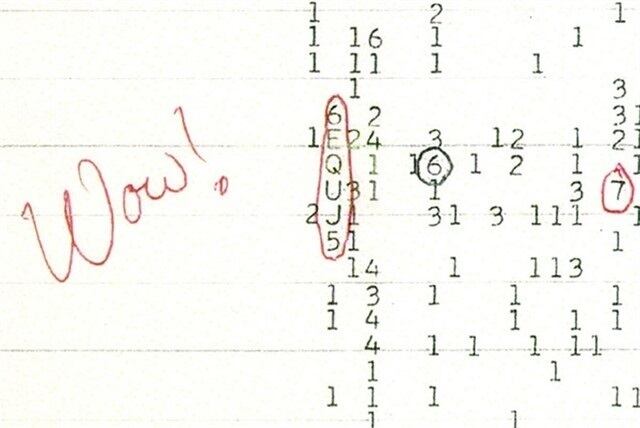 1 2 1
1 16 1 1
1 11 1 1
1 3
6 2 31
1 E 24 3 12 1 21
Q 1 16 1 2 1 1
Wow! U 31 1 3 7
2 J 1 31 3 111 1
51 1
14 1 113
1 3 1 1 1
1 4 1 1 1
4 1 1 1 11
1 1
1 1 1 11
1 1